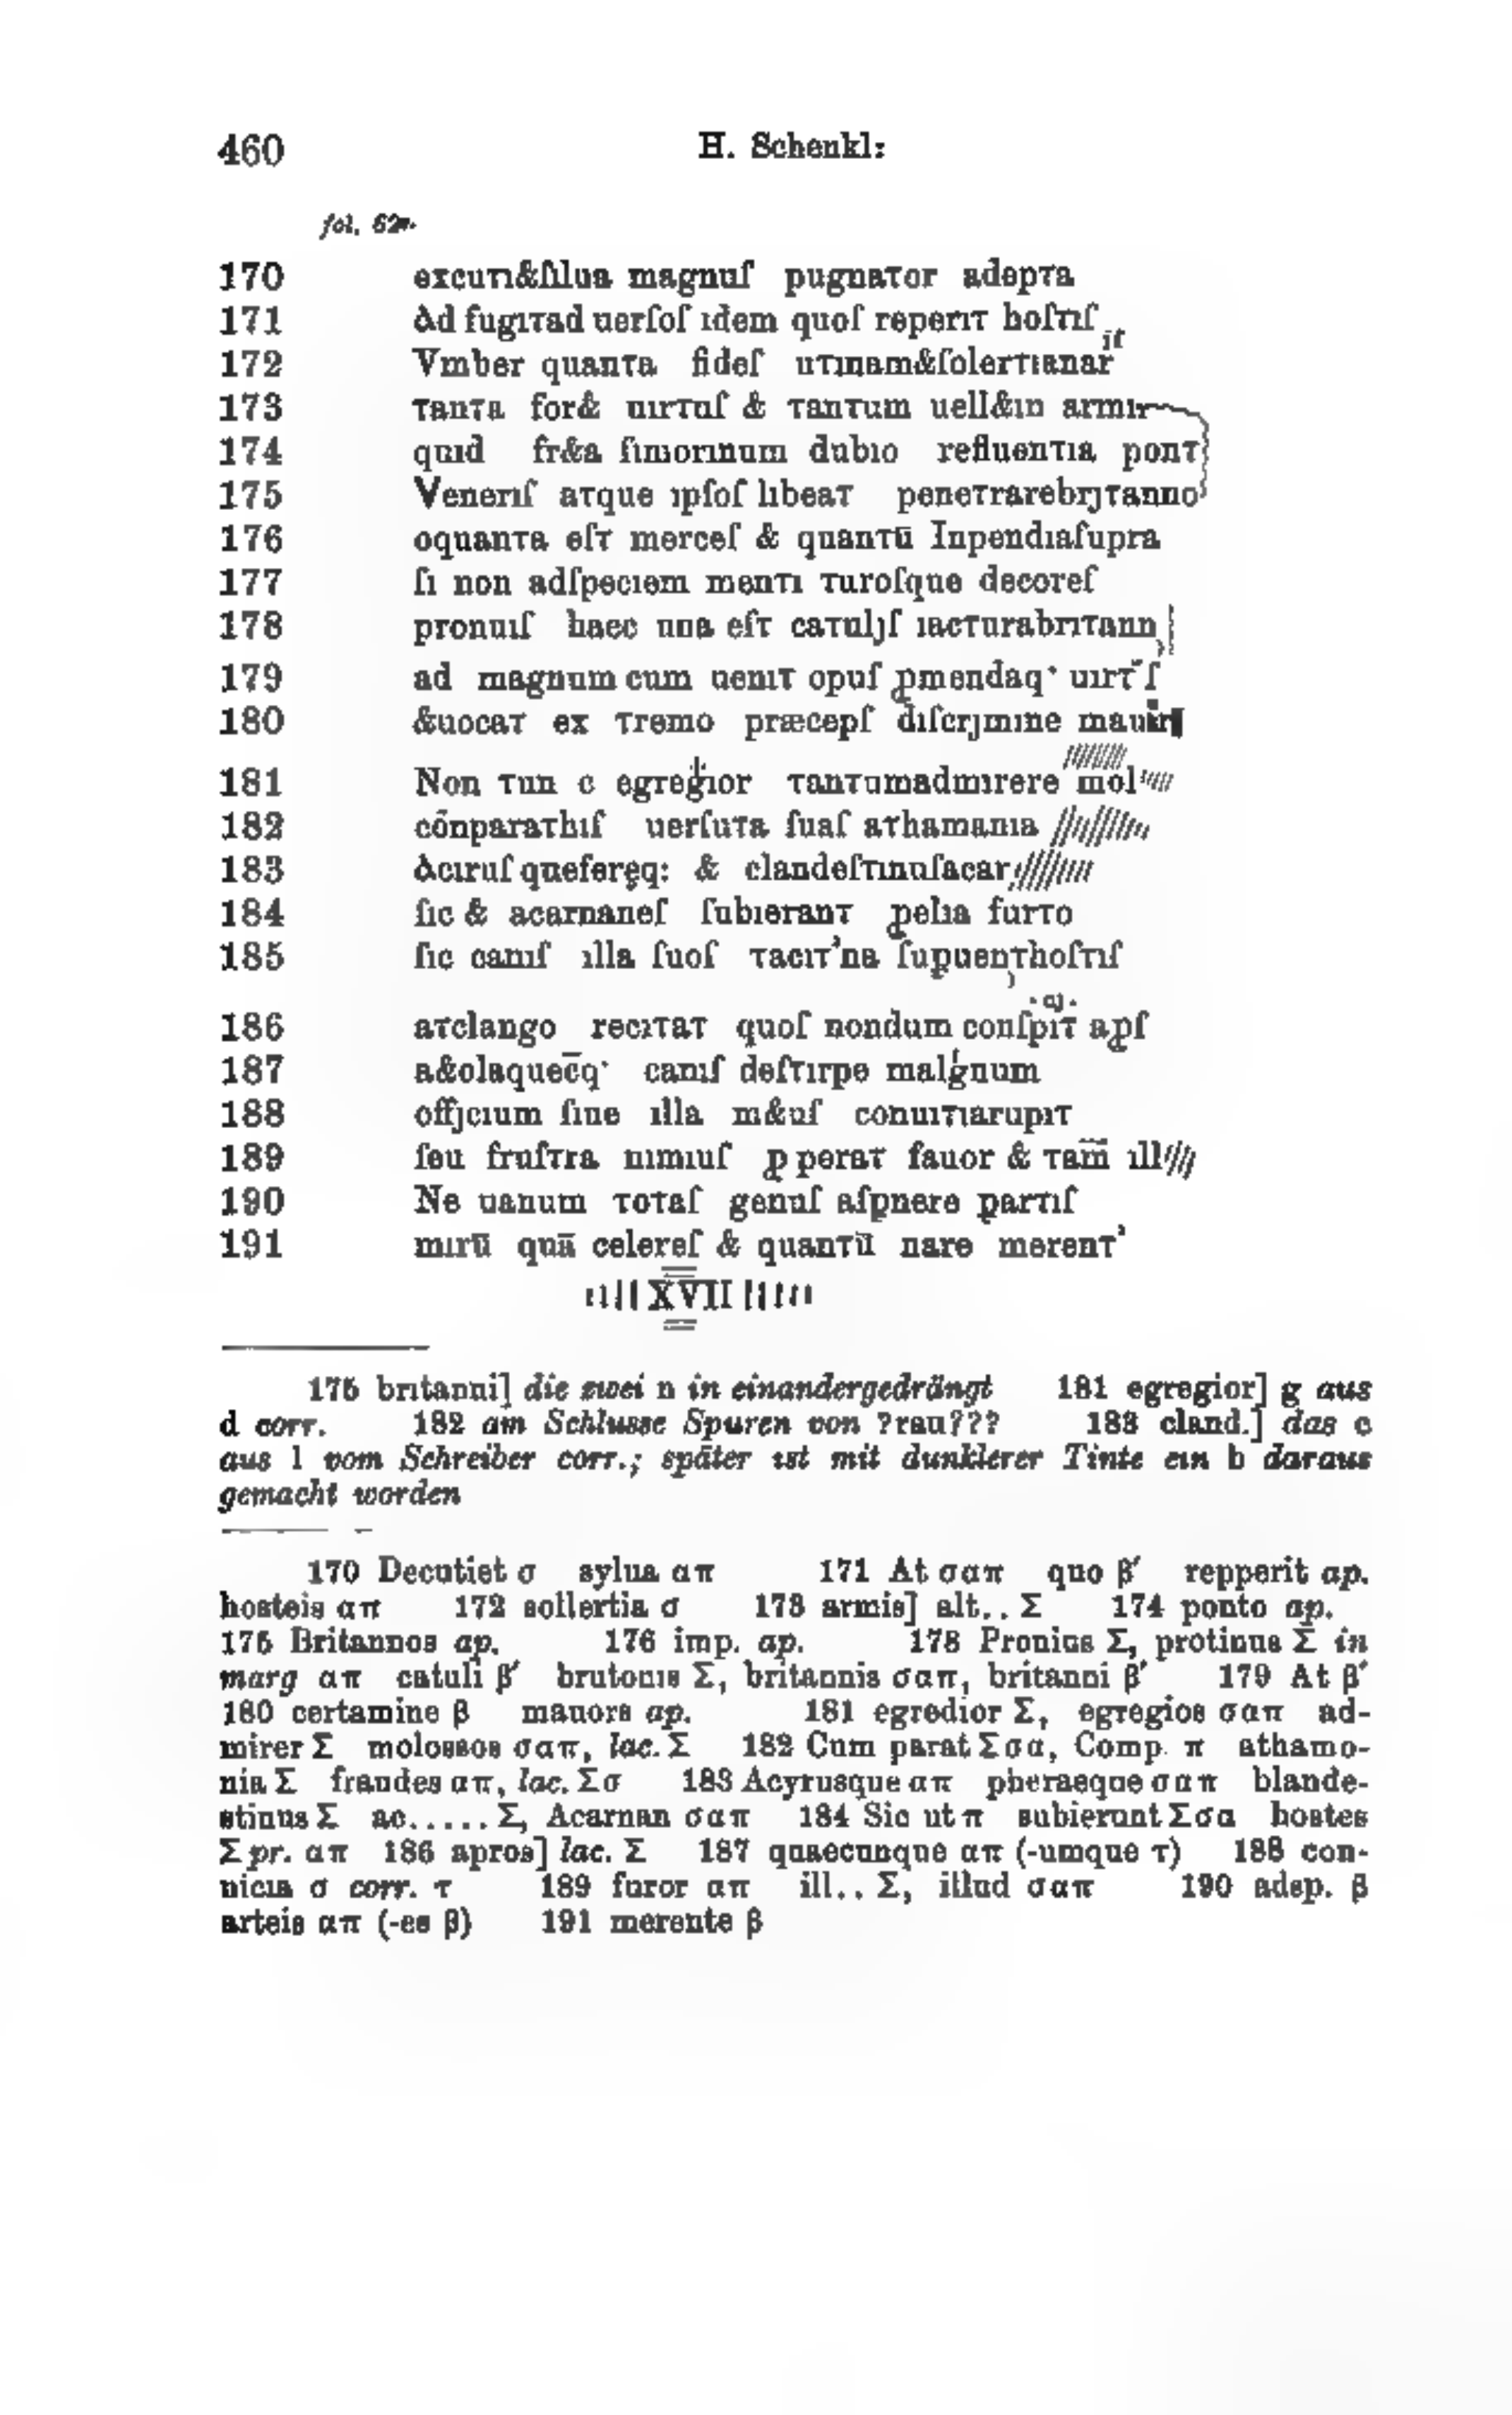 460 H. Schenkl:
fol. 62v.
170 excuτı&ſılua magnuſ pugnaτor adepτa
171 Ad fugıτad uerſoſ ıdem quoſ reperıτ hoſτıſ
172 Vmber quanτa fideſ uτınam&ſolerτıanarıſ
173 τanτa for& uırτuſ & τanτum uell&ın armıſ
174 quıd fr&a ſımorınum dubıo refluenτıa ponτ
175 Venerıſ aτque ıpſoſ lıbeaτ peneτrarebrȷτanno
176 oquanτa eſτ merceſ & quanτū Inpendıaſupra
177 ſı non adſpecıem menτı τuroſque decoreſ
178 pronuıſ haec una eſτ caτulȷſ ıacτurabrıτann
179 ad magnum cum uenıτ opuſ ꝓmendaq· uırτ'ſ
180 &uocaτ ex τremo præcepſ dıſcrȷmıne
181 Non τun c egregior τanτumadmırere mol
182 cónparaτhıſ uerſuτa ſuaſ aτhamanıa
183 Acıruſ quefere̜q: & clandeſτınuſacar
184 ſıc & acarnaneſ ſubıeranτ ꝓelıa furτo
185 ſıc canıſ ılla ſuoſ τacıτ'na ſuꝑuenτhoſτıſ
186 aτclango recıτaτ quoſ nondum conſpıτ aꝓſ
187 a&olaquec̄q· canıſ deſτırpe malıgnum
188 offȷcıum ſıne ılla m&uſ conuıτıarupıτ
189 ſeu fruſτra nımıuſ ꝓ peraτ fauor & τam̄ ıll
190 Ne uanum τoτaſ genuſ aſꝑnere ꝑarτıſ
191 mırū quā celereſ & quanτū nare merenτ'
XVII
175 brıtanni] die zwei n in einandergedrängt 181 egregior] g aus
d corr. 182 am Schlusse Spuren von ?rau??? 183 cland.] das c
aus l vom Schreiber corr.; später ist mit dunklerer Tinte ein b daraus
gemacht worden
170 Decutiet σ sylua απ 171 At σαπ quo β′ repperit ap.
hosteis απ 172 sollertia σ 173 armis] alt.. Σ 174 ponto ap.
175 Britannos ap. 176 imp. ap. 178 Pronius Σ, protinus Σ in
marg απ catuli β′ brutonis Σ, britannis σαπ, britanni β′ 179 At β′
180 certamine β mauors ap. 181 egredior Σ, egregios σαπ ad-
mirer Σ molossos σαπ, lac. Σ 182 Cum parat Σσα, Comp. π athamo-
nia Σ fraudes απ, lac. Σσ 183 Acyrusque απ pheraeque σαπ blande-
stinus Σ ac..... Σ, Acarnan σαπ 184 Sic ut π subierunt Σσα hostes
Σ pr. απ 186 apros] lac. Σ 187 quaecunque απ (-umque τ) 188 con-
uicia σ corr. τ 189 furor απ ill.. Σ, illud σαπ 190 adsp. β
arteis απ (-es β) 191 merente β